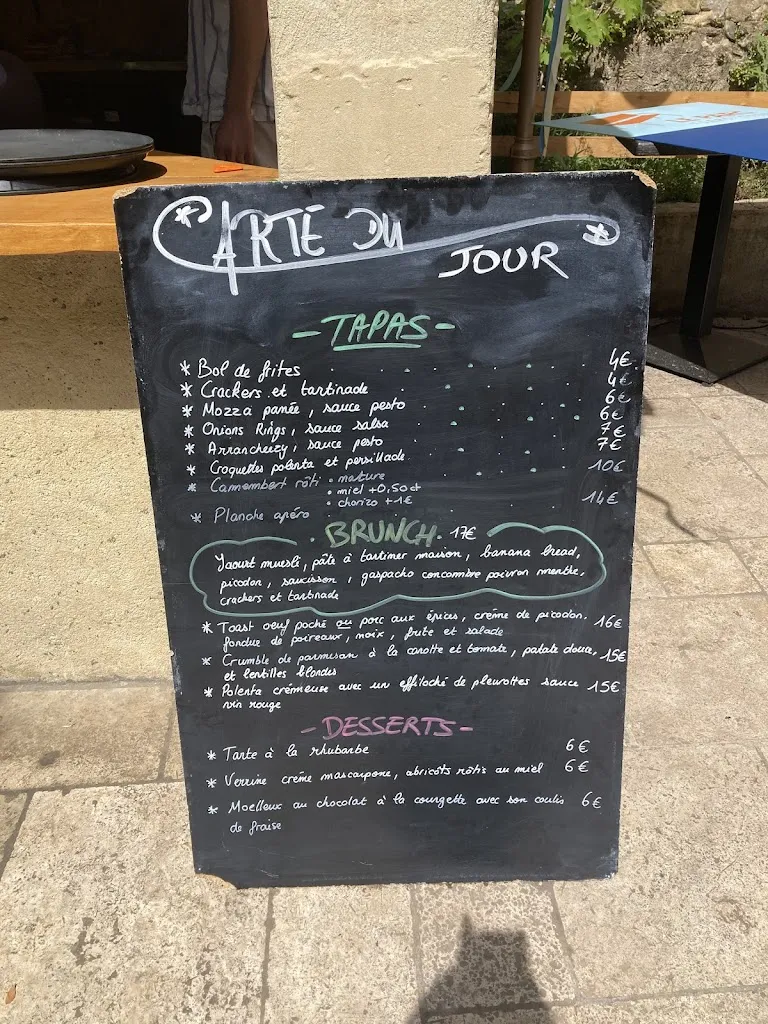 CARTE DU
JOUR
- TAPAS -
* Bol de frites 4€
* Crackers et tartinade 4€
* Mozza panée, sauce pesto 6€
* Onions Rings, sauce salsa 6€
* Arrancheezy, sauce pesto 7€
* Croquettes polenta et persillade 7€
* Camembert rôti • nature 10€
• miel +0,50ct
• chorizo +1€
* Planche apéro 14€
• BRUNCH • 17€
Yaourt muesli, pâte à tartiner maison, banana bread,
picodon, saucisson, gaspacho concombre poivron menthe,
crackers et tartinade
* Toast oeuf poché ou porc aux épices, crème de picodon, 16€
fondue de poireaux, noix, frite et salade
* Crumble de parmesan à la carotte et tomate, patate douce, 15€
et lentilles blondes
* Polenta crémeuse avec un effiloché de pleurottes sauce 15€
vin rouge
- DESSERTS -
* Tarte à la rhubarbe 6€
* Verrine crème mascarpone, abricots rôtis au miel 6€
* Moelleux au chocolat à la courgette avec son coulis 6€
de fraise